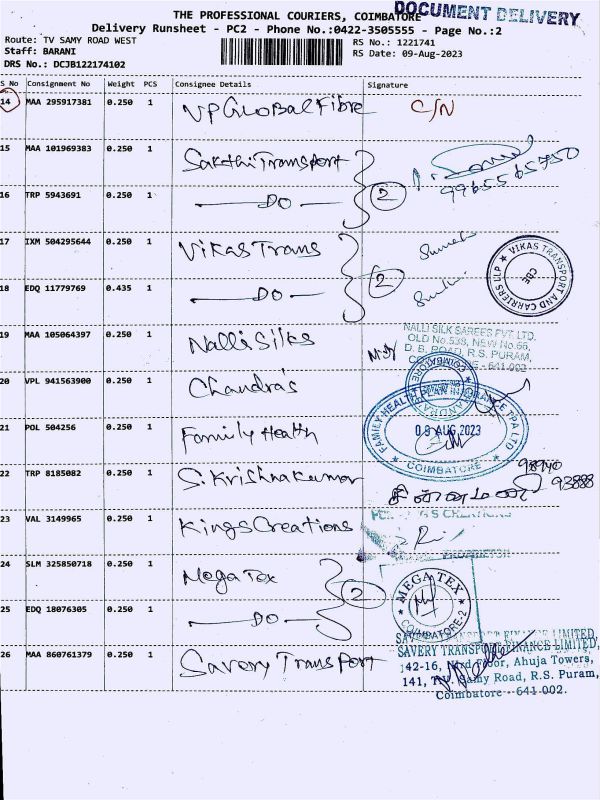 THE PROFESSIONAL COURIERS, COIMBATORE
DOCUMENT DELIVERY
Delivery Runsheet - PC2 - Phone No.:0422-3505555 - Page No.:2
Route: TV SAMY ROAD WEST
RS No.: 1221741
Staff: BARANI
RS Date: 09-Aug-2023
DRS No.: DCJB122174102
S No Consignment No Weight PCS Consignee Details Signature
14 MAA 295917381 0.250 1 VP Global Fibre C/N
15 MAA 101969383 0.250 1 Sakthi Transport
9965565750
16 TRP 5943691 0.250 1 — DO — 2
17 IXM 504295644 0.250 1 Vikas Trans
VIKAS TRANSPORT AND CARRIERS LLP
CBE
18 EDQ 11779769 0.435 1 — DO — 2
19 MAA 105064397 0.250 1 Nalli Silks
NALLI SILK SAREES PVT. LTD.
OLD No.538, NEW No.66,
D. B. ROAD, R.S. PURAM,
COIMBATORE - 641 002
20 VPL 941563900 0.250 1 Chandra's
COIMBATORE
21 POL 504256 0.250 1 Family Health
FAMILY HEALTH PLAN INSURANCE TPA LTD
COIMBATORE
22 TRP 8185082 0.250 1 S. Krishnakumar
93888
23 VAL 3149965 0.250 1 Kings Creations
24 SLM 325850718 0.250 1 Mega Tex
MEGA TEX
COIMBATORE-2
25 EDQ 18076305 0.250 1 — DO — 2
26 MAA 860761379 0.250 1 Savery Transport
SAVERY TRANSPORT FINANCE LIMITED,
142-16, IIIrd Floor, Ahuja Towers,
141, T.V. Samy Road, R.S. Puram,
Coimbatore - 641 002.